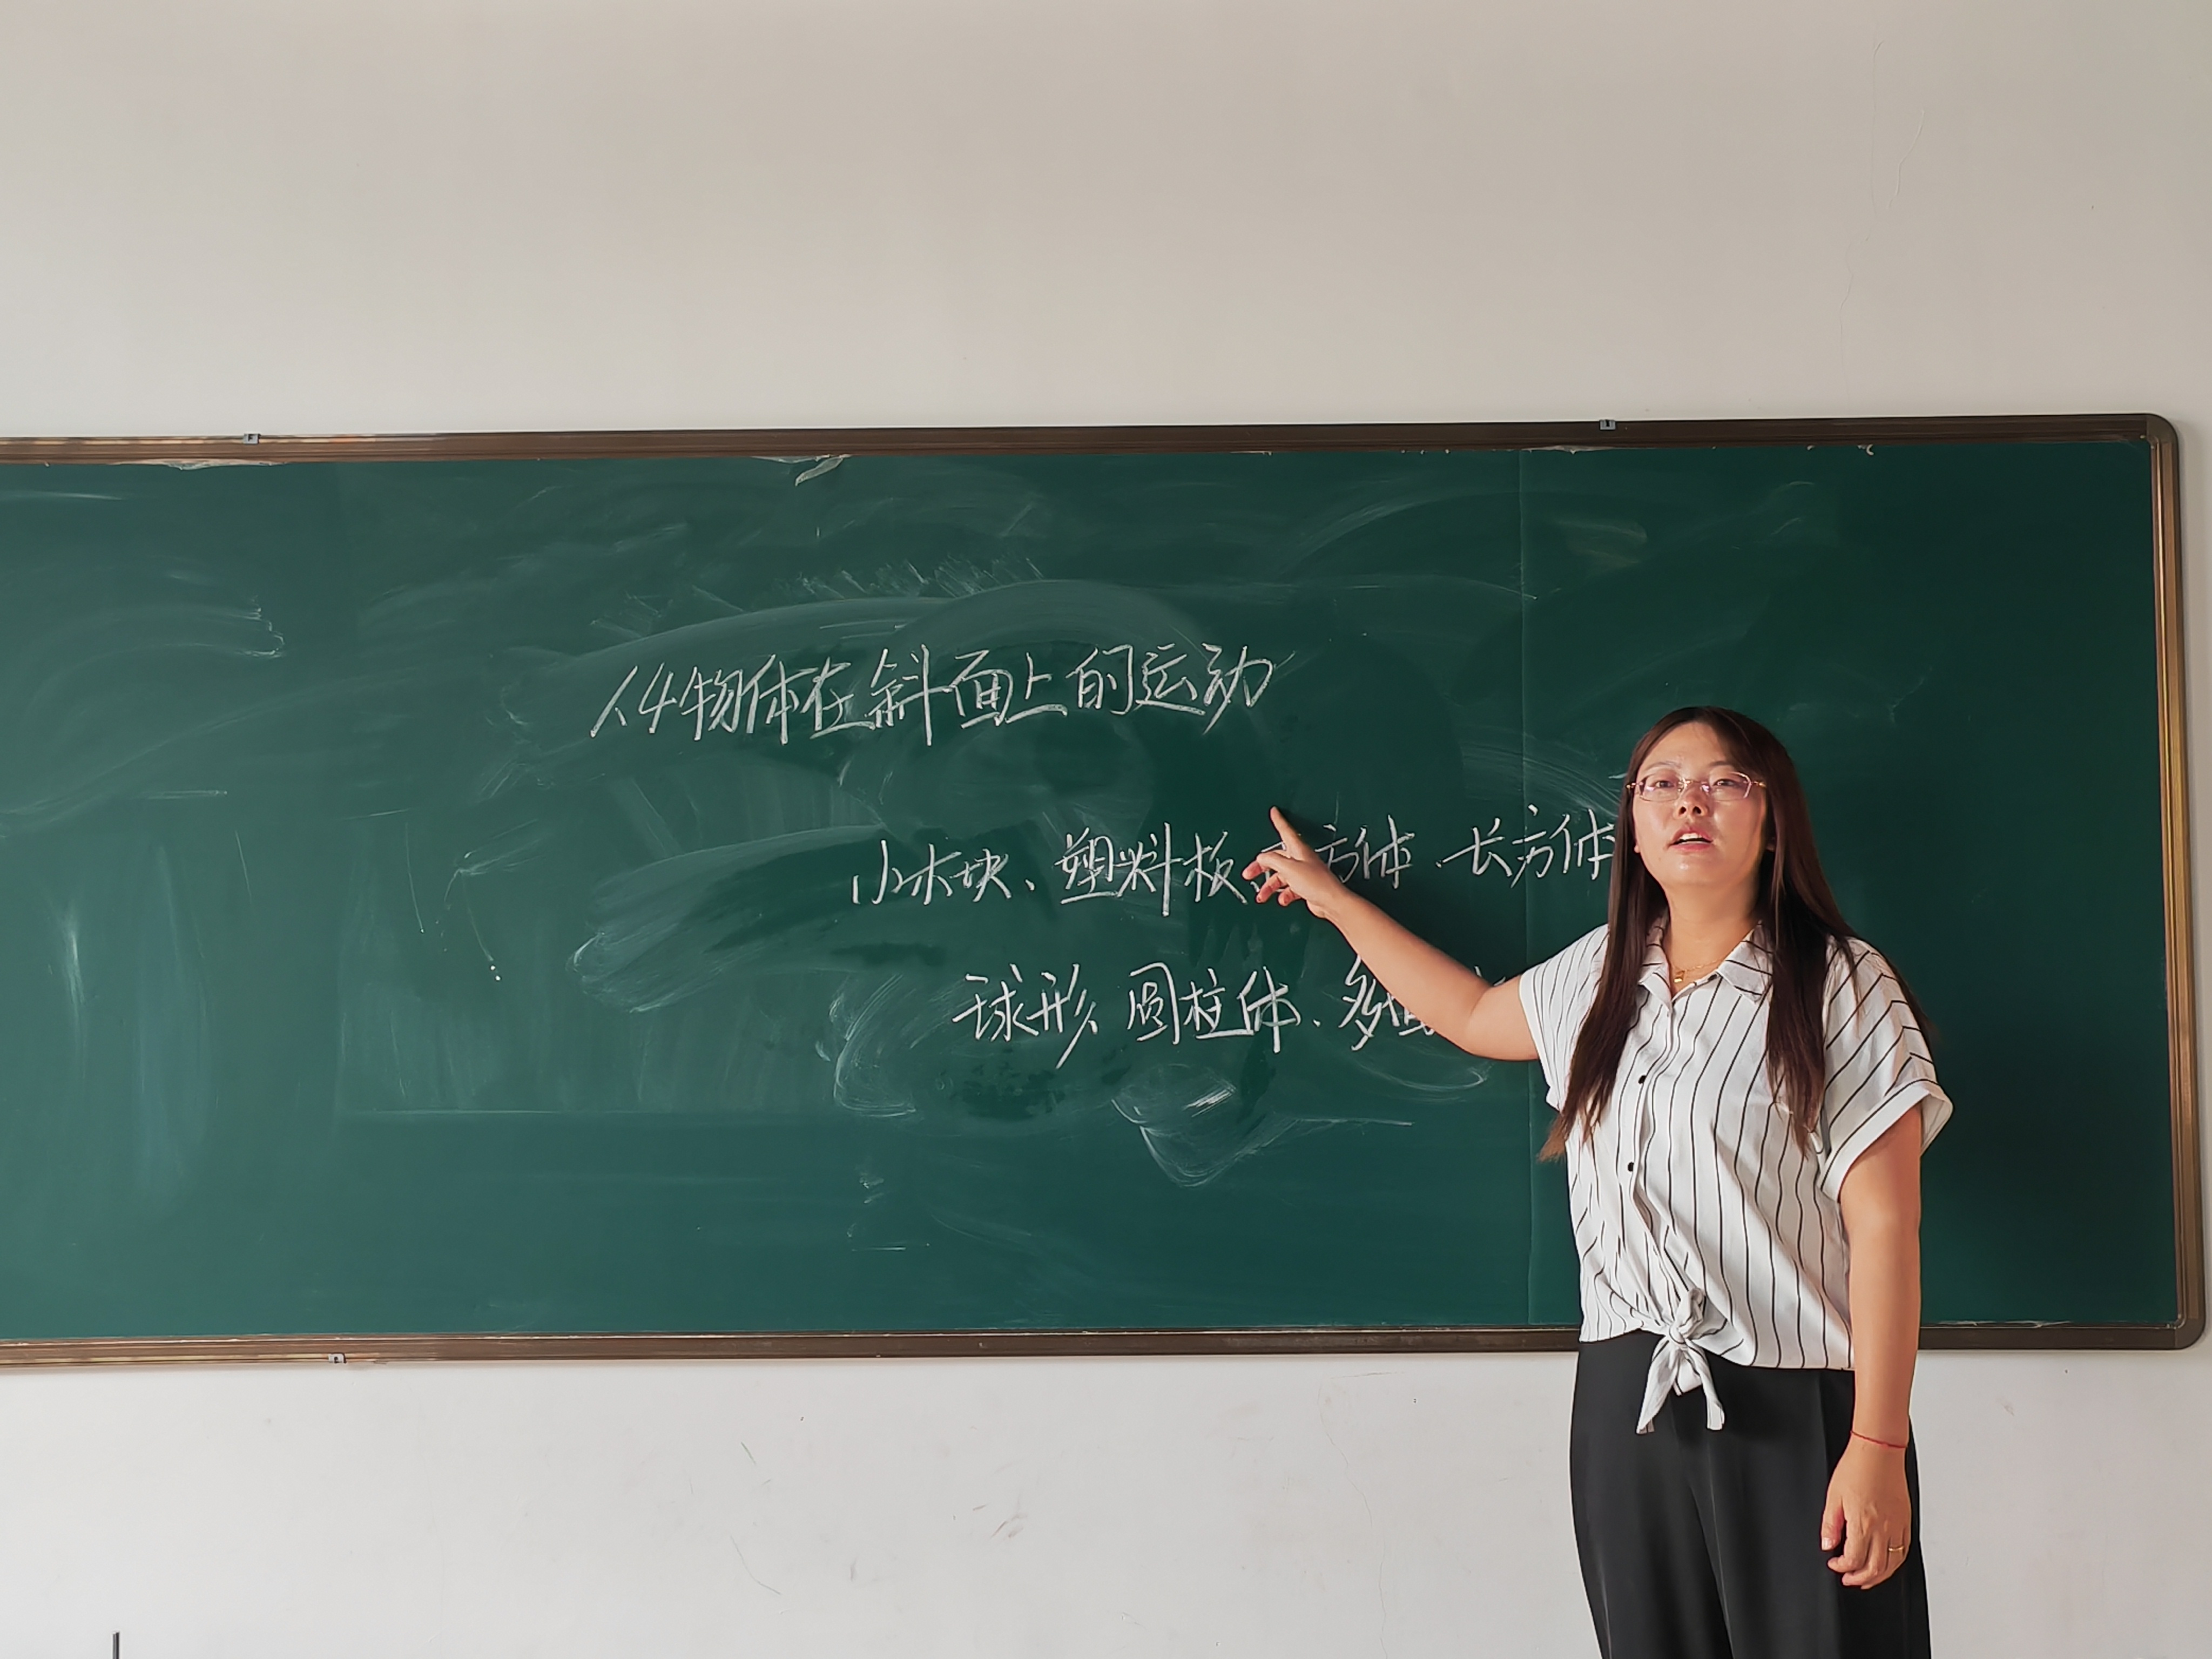 1.4物体在斜面上的运动
小木块、塑料板、方体、长方体
球形、圆柱体、多